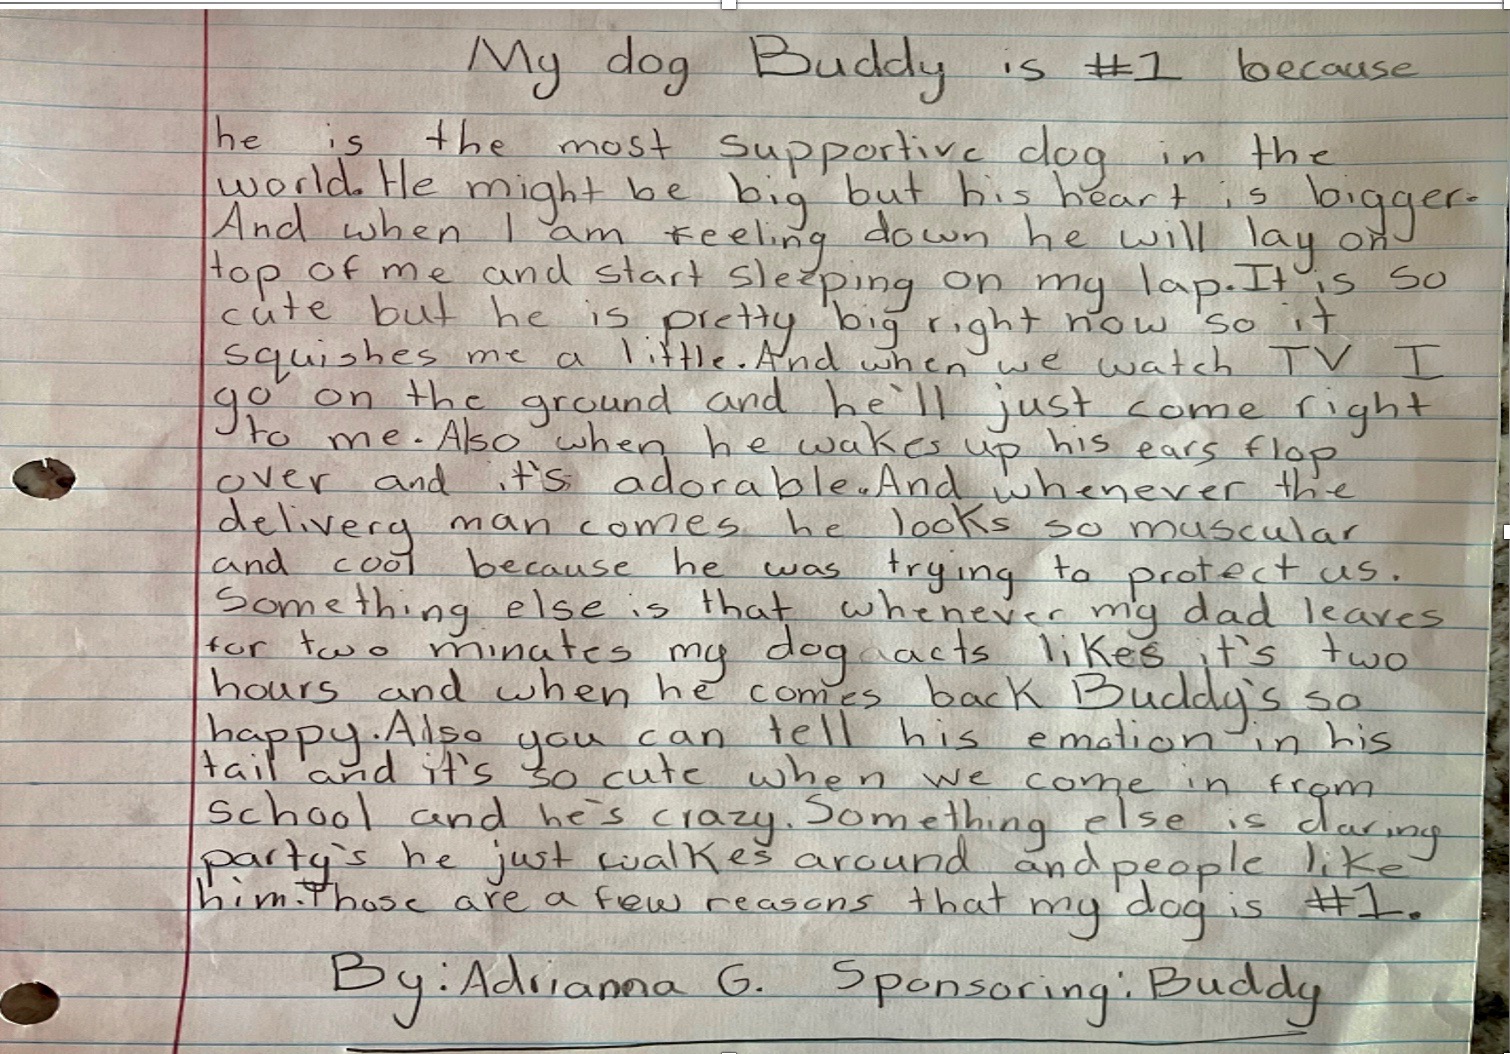 My dog Buddy is #1 because
he is the most supportive dog in the
world. He might be big but his heart is bigger.
And when I am feeling down he will lay on
top of me and start sleeping on my lap. It is so
cute but he is pretty big right now so it
squishes me a little. And when we watch TV I
go on the ground and he'll just come right
to me. Also when he wakes up his ears flop
over and it's adorable. And whenever the
delivery man comes he looks so muscular
and cool because he was trying to protect us.
Something else is that whenever my dad leaves
for two minutes my dog acts likes it's two
hours and when he comes back Buddy's so
happy. Also you can tell his emotion in his
tail and it's so cute when we come in from
school and he's crazy. Something else is during
party's he just walkes around and people like
him. Those are a few reasons that my dog is #1.
By: Adrianna G. Sponsoring: Buddy